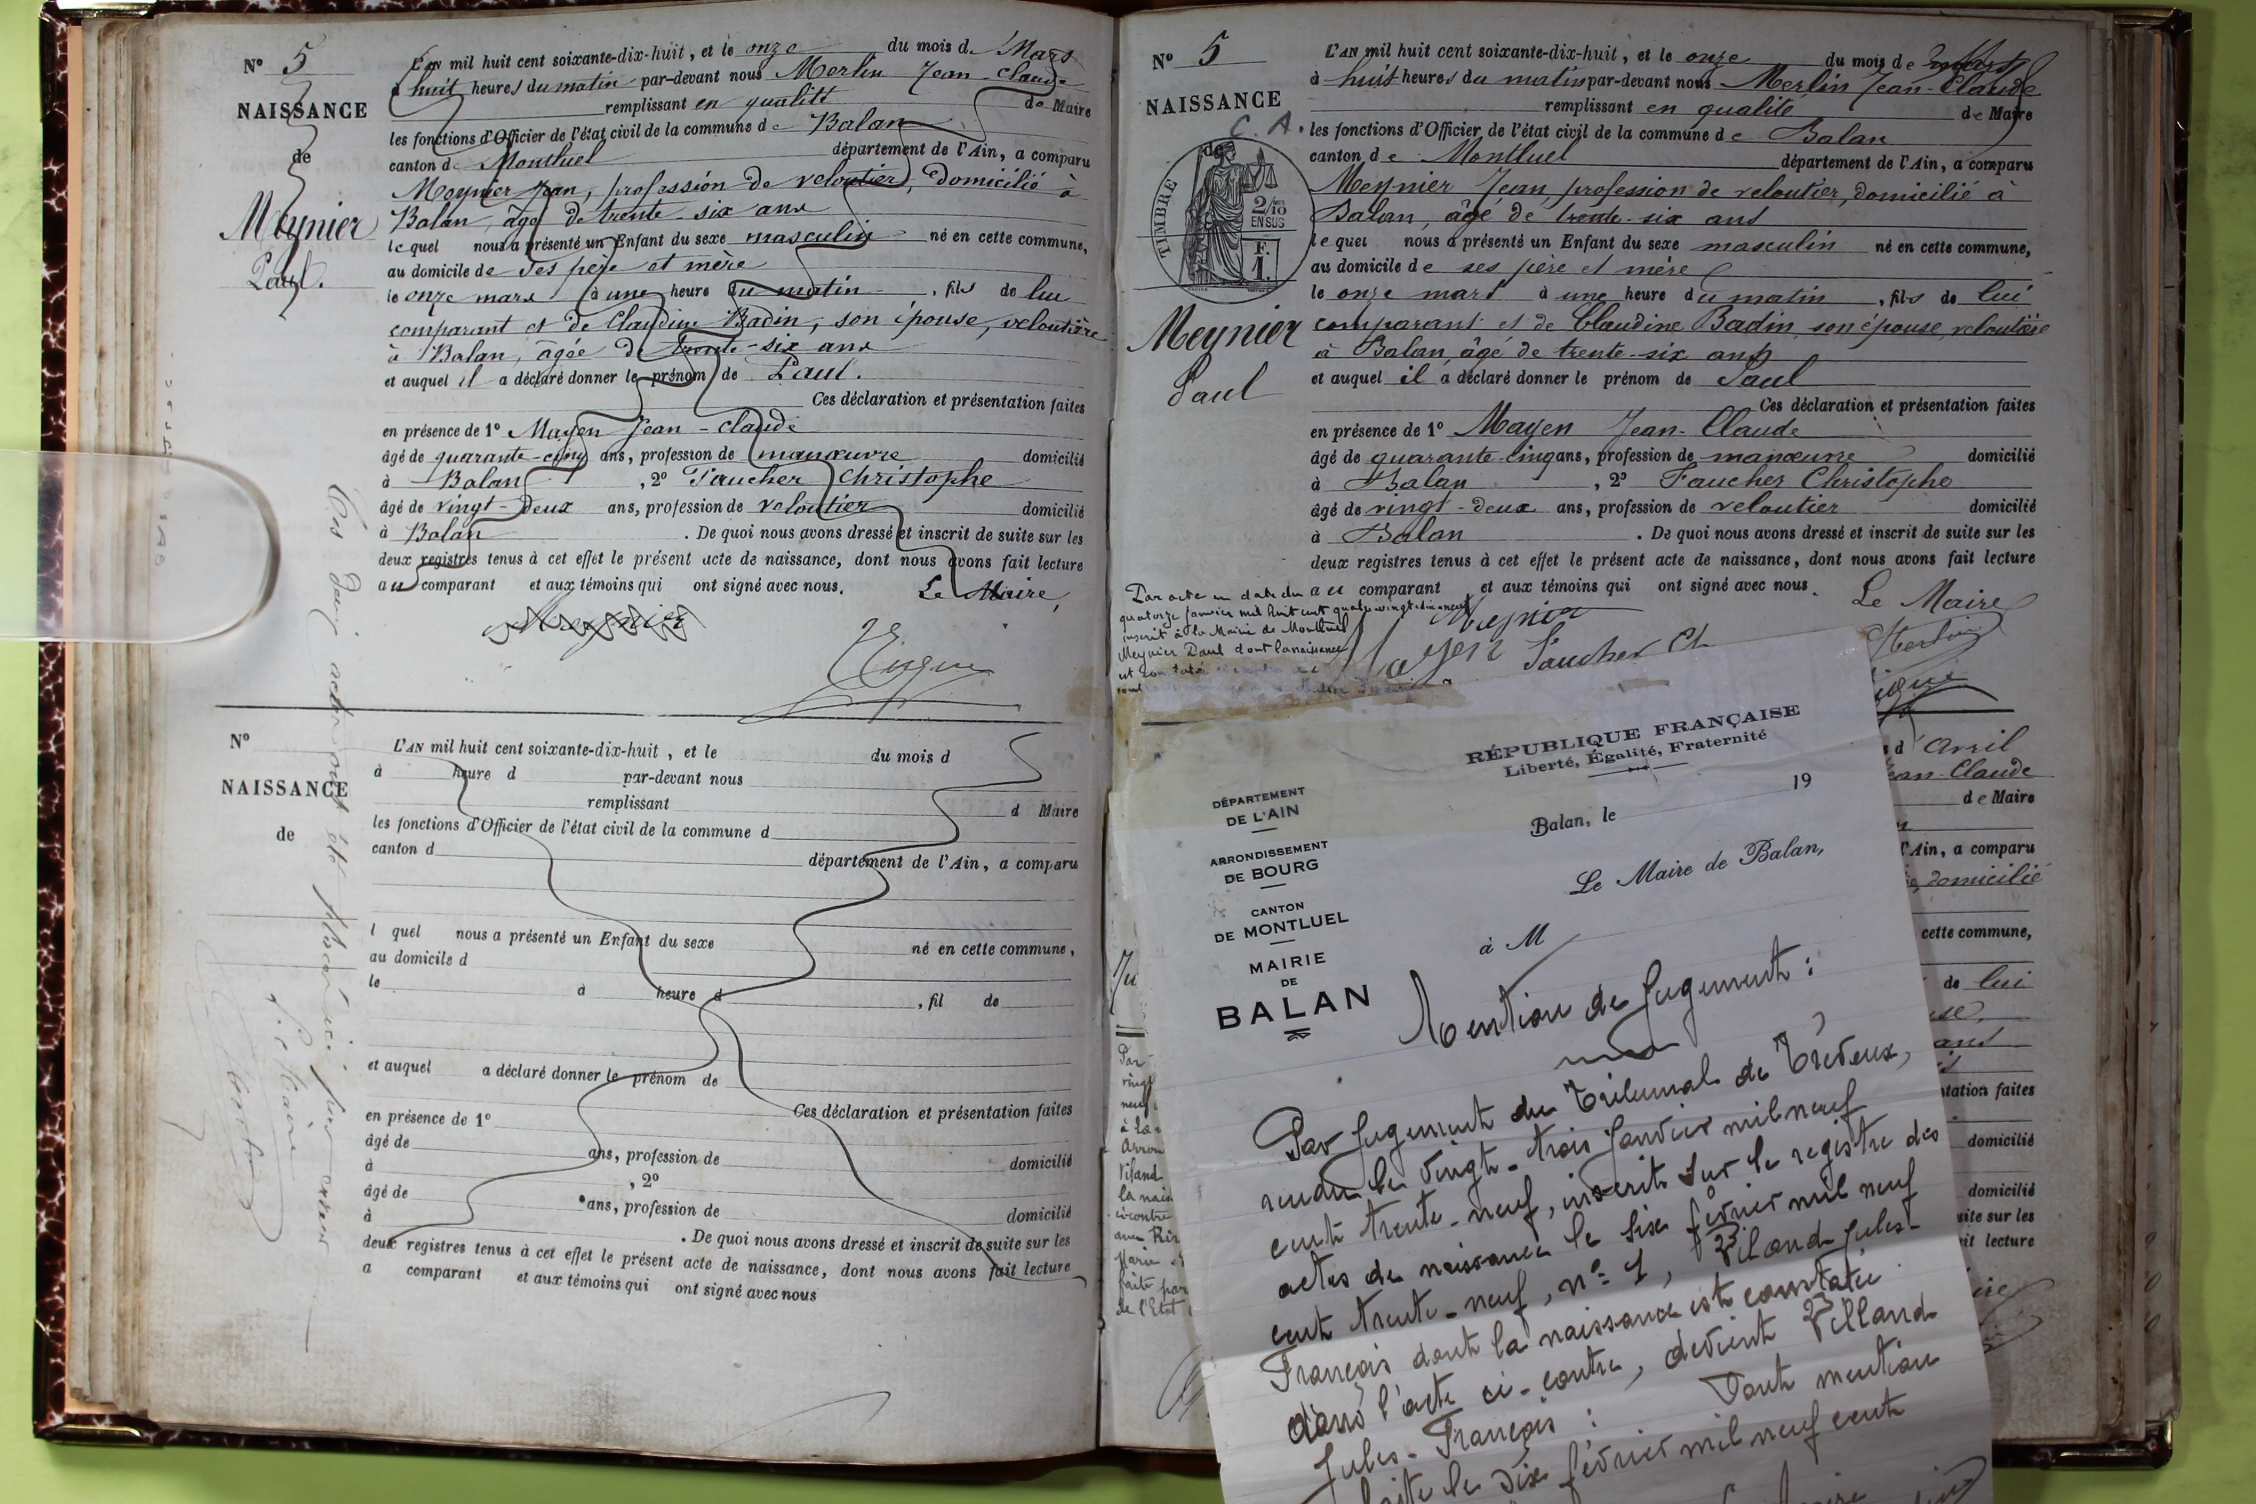 N° 5
NAISSANCE
de
Meynier
Paul.
L'AN mil huit cent soixante-dix-huit, et le onze du mois de Mars
à huit heures du matin par-devant nous Merlin Jean-Claude
remplissant en qualité de Maire
les fonctions d'Officier de l'état civil de la commune de Balan
canton de Montluel département de l'Ain, a comparu
Meynier Jean, profession de veloutier, domicilié à
Balan, âgé de trente-six ans
lequel nous a présenté un Enfant du sexe masculin né en cette commune,
au domicile de ses père et mère
le onze mars à une heure du matin, fils de lui
comparant et de Claudine Badin, son épouse, veloutière
à Balan, âgée de trente-six ans
et auquel il a déclaré donner le prénom de Paul.
Ces déclaration et présentation faites
en présence de 1° Mayen Jean-Claude
âgé de quarante-cinq ans, profession de manœuvre domicilié
à Balan, 2° Faucher Christophe
âgé de vingt-deux ans, profession de veloutier domicilié
à Balan. De quoi nous avons dressé et inscrit de suite sur les
deux registres tenus à cet effet le présent acte de naissance, dont nous avons fait lecture
au comparant et aux témoins qui ont signé avec nous.
Le Maire,
Meynier
N°
NAISSANCE
de
L'AN mil huit cent soixante-dix-huit, et le du mois d
à heure d par-devant nous
remplissant d Maire
les fonctions d'Officier de l'état civil de la commune d
canton d département de l'Ain, a comparu
l quel nous a présenté un Enfant du sexe né en cette commune,
au domicile d
le à heure d, fil de
et auquel a déclaré donner le prénom de
Ces déclaration et présentation faites
en présence de 1°
âgé de ans, profession de domicilié
à, 2°
âgé de ans, profession de domicilié
à. De quoi nous avons dressé et inscrit de suite sur les
deux registres tenus à cet effet le présent acte de naissance, dont nous avons fait lecture
a comparant et aux témoins qui ont signé avec nous
Ces deux actes ont été ici par erreur
Le Maire
N° 5
NAISSANCE
C. A.
de
TIMBRE
2/10
EN SUS
F.
1.
Meynier
Paul
L'AN mil huit cent soixante-dix-huit, et le onze du mois de Mars
à huit heures du matin par-devant nous Merlin Jean-Claude
remplissant en qualité de Maire
les fonctions d'Officier de l'état civil de la commune de Balan
canton de Montluel département de l'Ain, a comparu
Meynier Jean, profession de veloutier, domicilié à
Balan, âgé de trente-six ans
lequel nous a présenté un Enfant du sexe masculin né en cette commune,
au domicile de ses père et mère
le onze mars à une heure du matin, fils de lui
comparant et de Claudine Badin, son épouse, veloutière
à Balan, âgé de trente-six ans
et auquel il a déclaré donner le prénom de Paul
Ces déclaration et présentation faites
en présence de 1° Mayen Jean-Claude
âgé de quarante-cinq ans, profession de manœuvre domicilié
à Balan, 2° Faucher Christophe
âgé de vingt-deux ans, profession de veloutier domicilié
à Balan. De quoi nous avons dressé et inscrit de suite sur les
deux registres tenus à cet effet le présent acte de naissance, dont nous avons fait lecture
au comparant et aux témoins qui ont signé avec nous.
Le Maire
Meynier
Mayen Faucher Ch
Merlin
Par acte en date du
quatorze janvier mil huit cent quatre vingt dix neuf
inscrit à la Mairie de Montluel
Meynier Paul dont la naissance
est constatée
d'Avril
Jean-Claude
de Maire
l'Ain, a comparu
domicilié
cette commune,
de lui
ans
ntation faites
domicilié
domicilié
uite sur les
ait lecture
Par
vingt
neuf
à La
Arron
Viland
la nais
ci-contre
avec
Marie
faite par
de l'Etat
RÉPUBLIQUE FRANÇAISE
Liberté, Égalité, Fraternité
DÉPARTEMENT
DE L'AIN
ARRONDISSEMENT
DE BOURG
CANTON
DE MONTLUEL
MAIRIE
DE
BALAN
Balan, le 19
Le Maire de Balan,
à M
Mention de Jugement :
Par Jugement du Tribunal de Trévoux,
rendu le vingt-trois Janvier mil neuf
cent trente-neuf, inscrit sur le registre des
actes de naissance le six février mil neuf
cent trente-neuf, n° 1, Viland Jules-
François dont la naissance est constatée
dans l'acte ci-contre, devient Villand
Jules-François : Dont mention
faite le dix février mil neuf cent